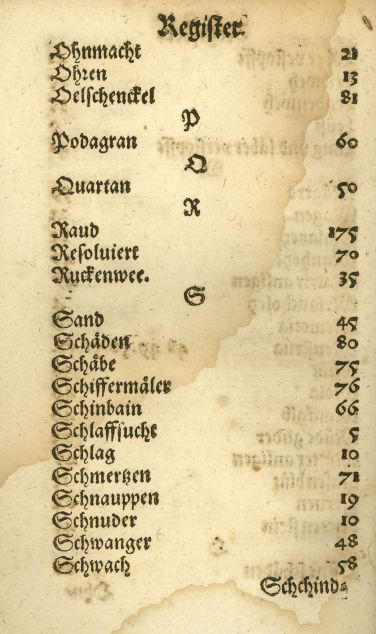 Register.
Ohnmacht 21
Ohren 13
Oelschenckel 81
P
Podagran 60
Q
Quartan 50
R
Raud 175
Resoluiert 70
Ruckenwee. 35
S
Sand 45
Schäden 80
Schäbe 75
Schiffermäler 76
Schinbain 66
Schlaffsucht 5
Schlag 10
Schmertzen 71
Schnauppen 19
Schnuder 10
Schwanger 48
Schwach 58
Schchind⸗